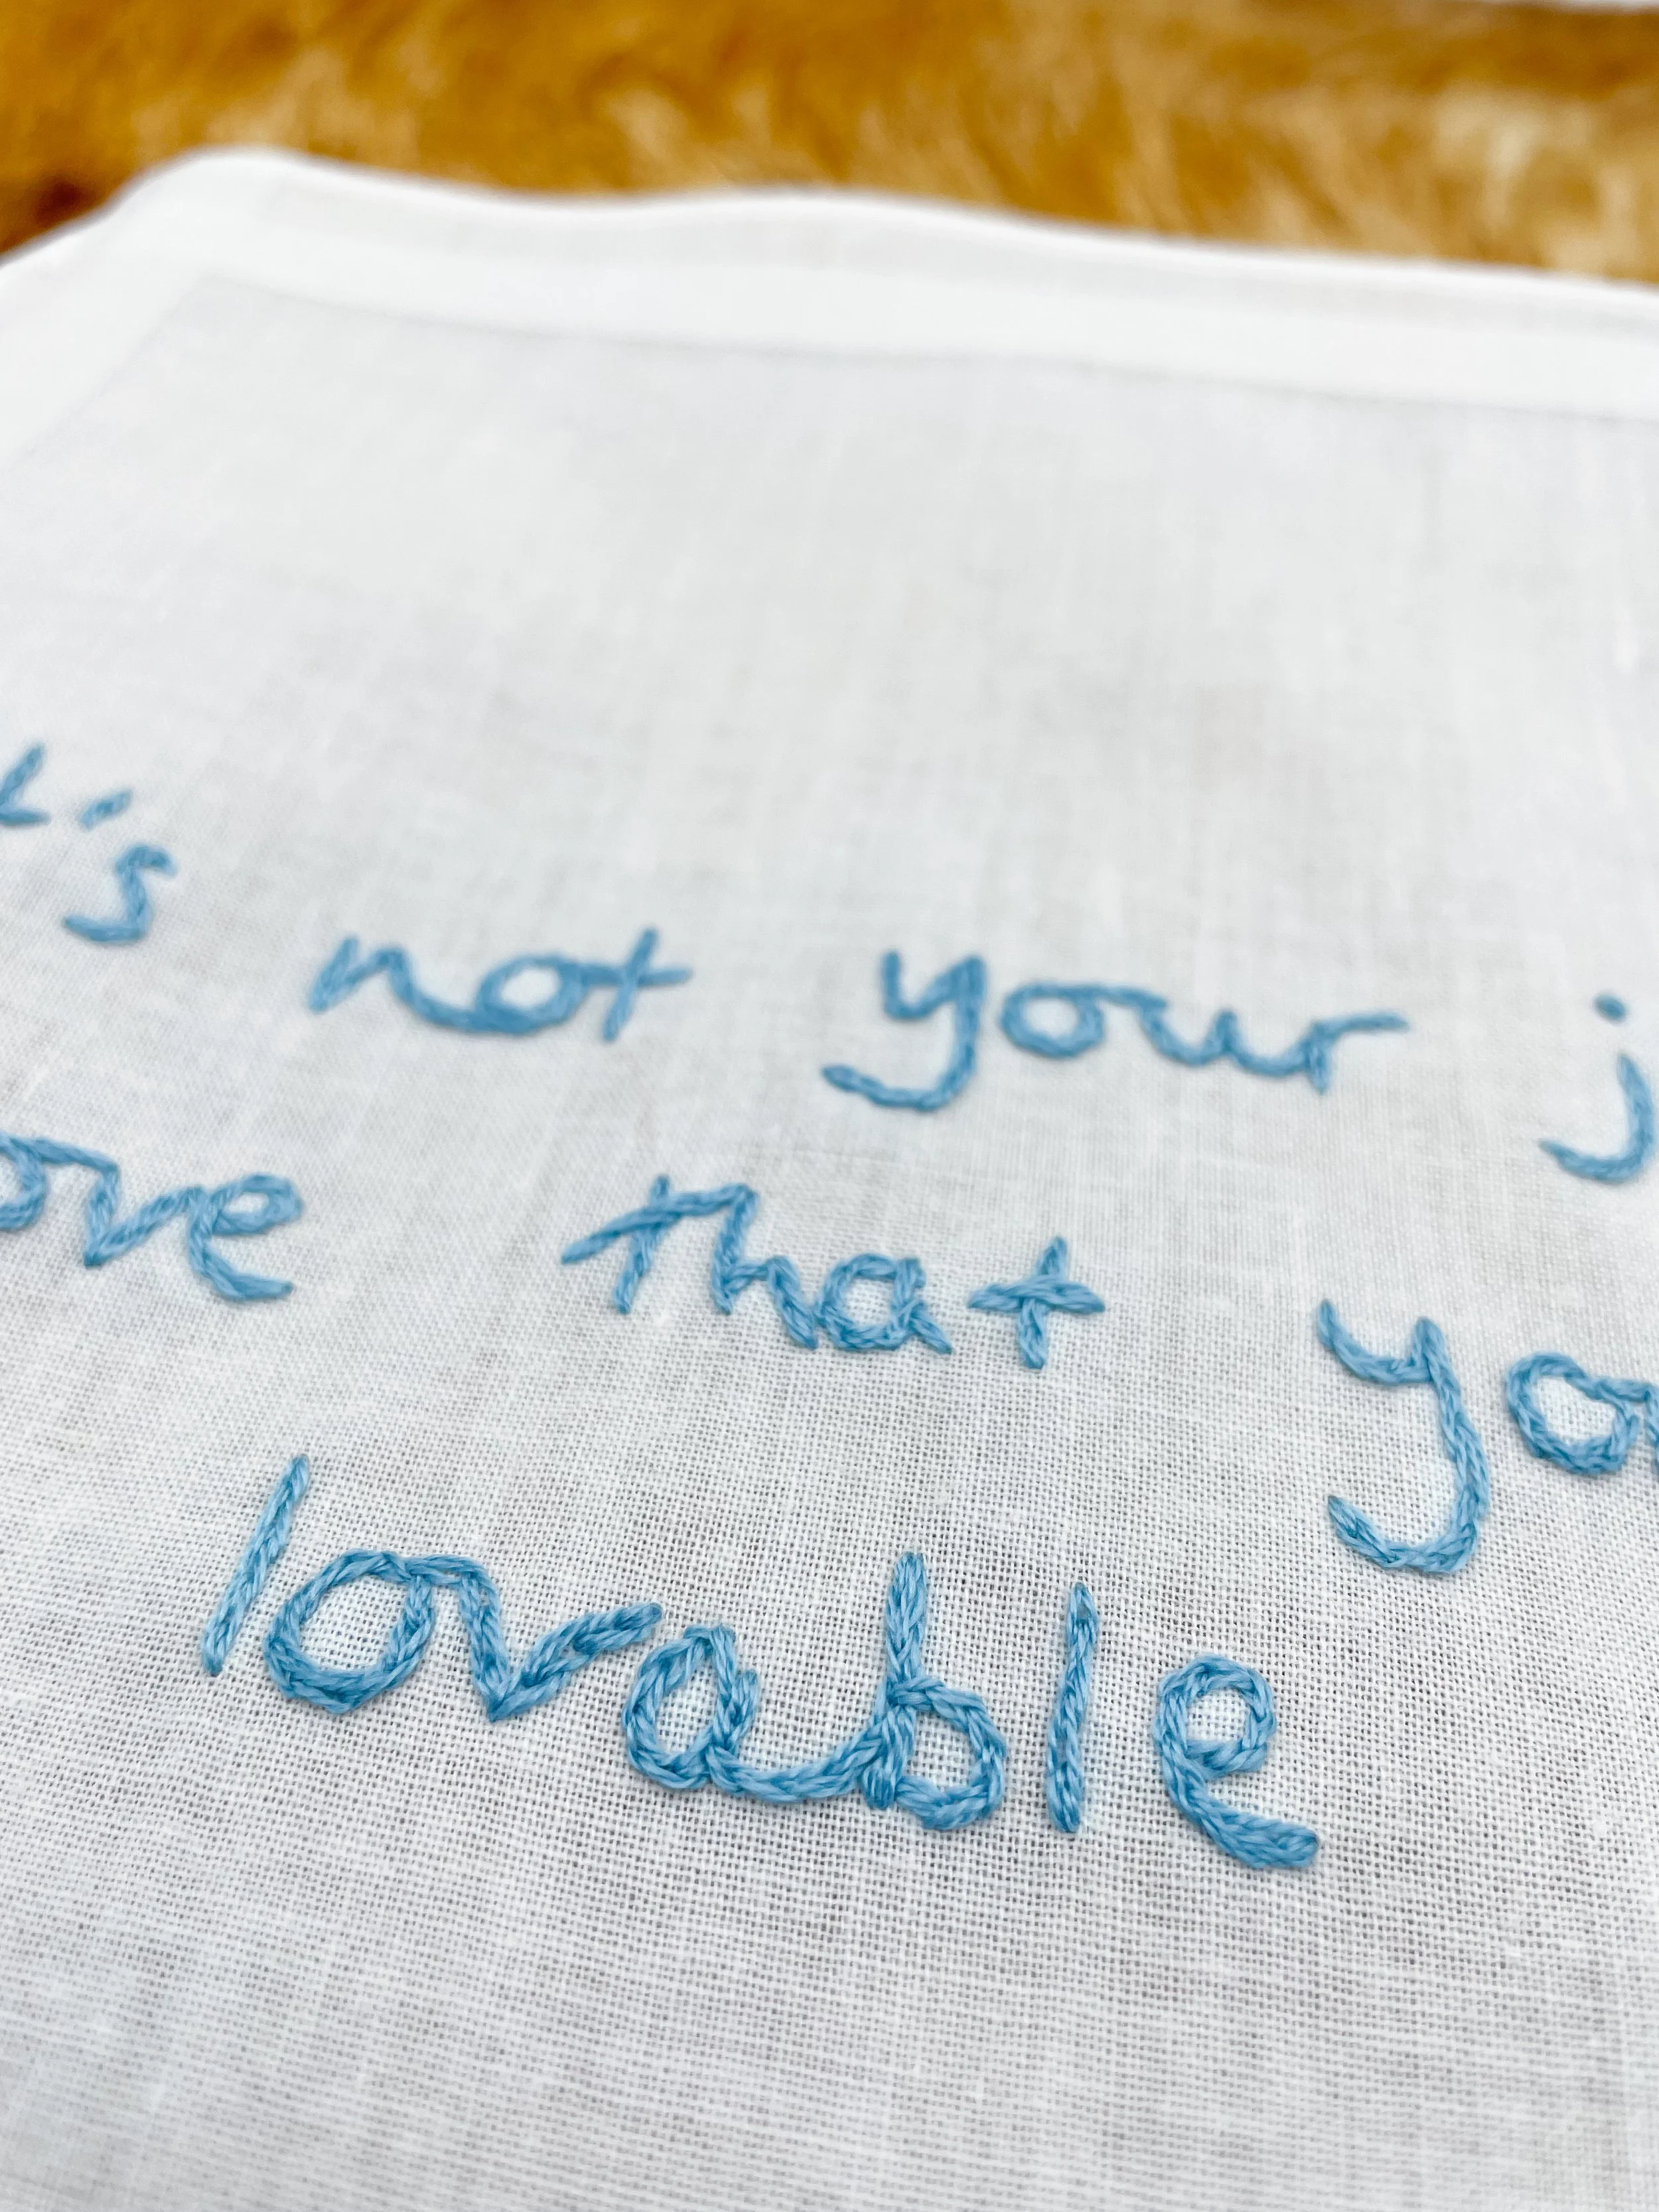 t's not your j
ove that yo
lovable